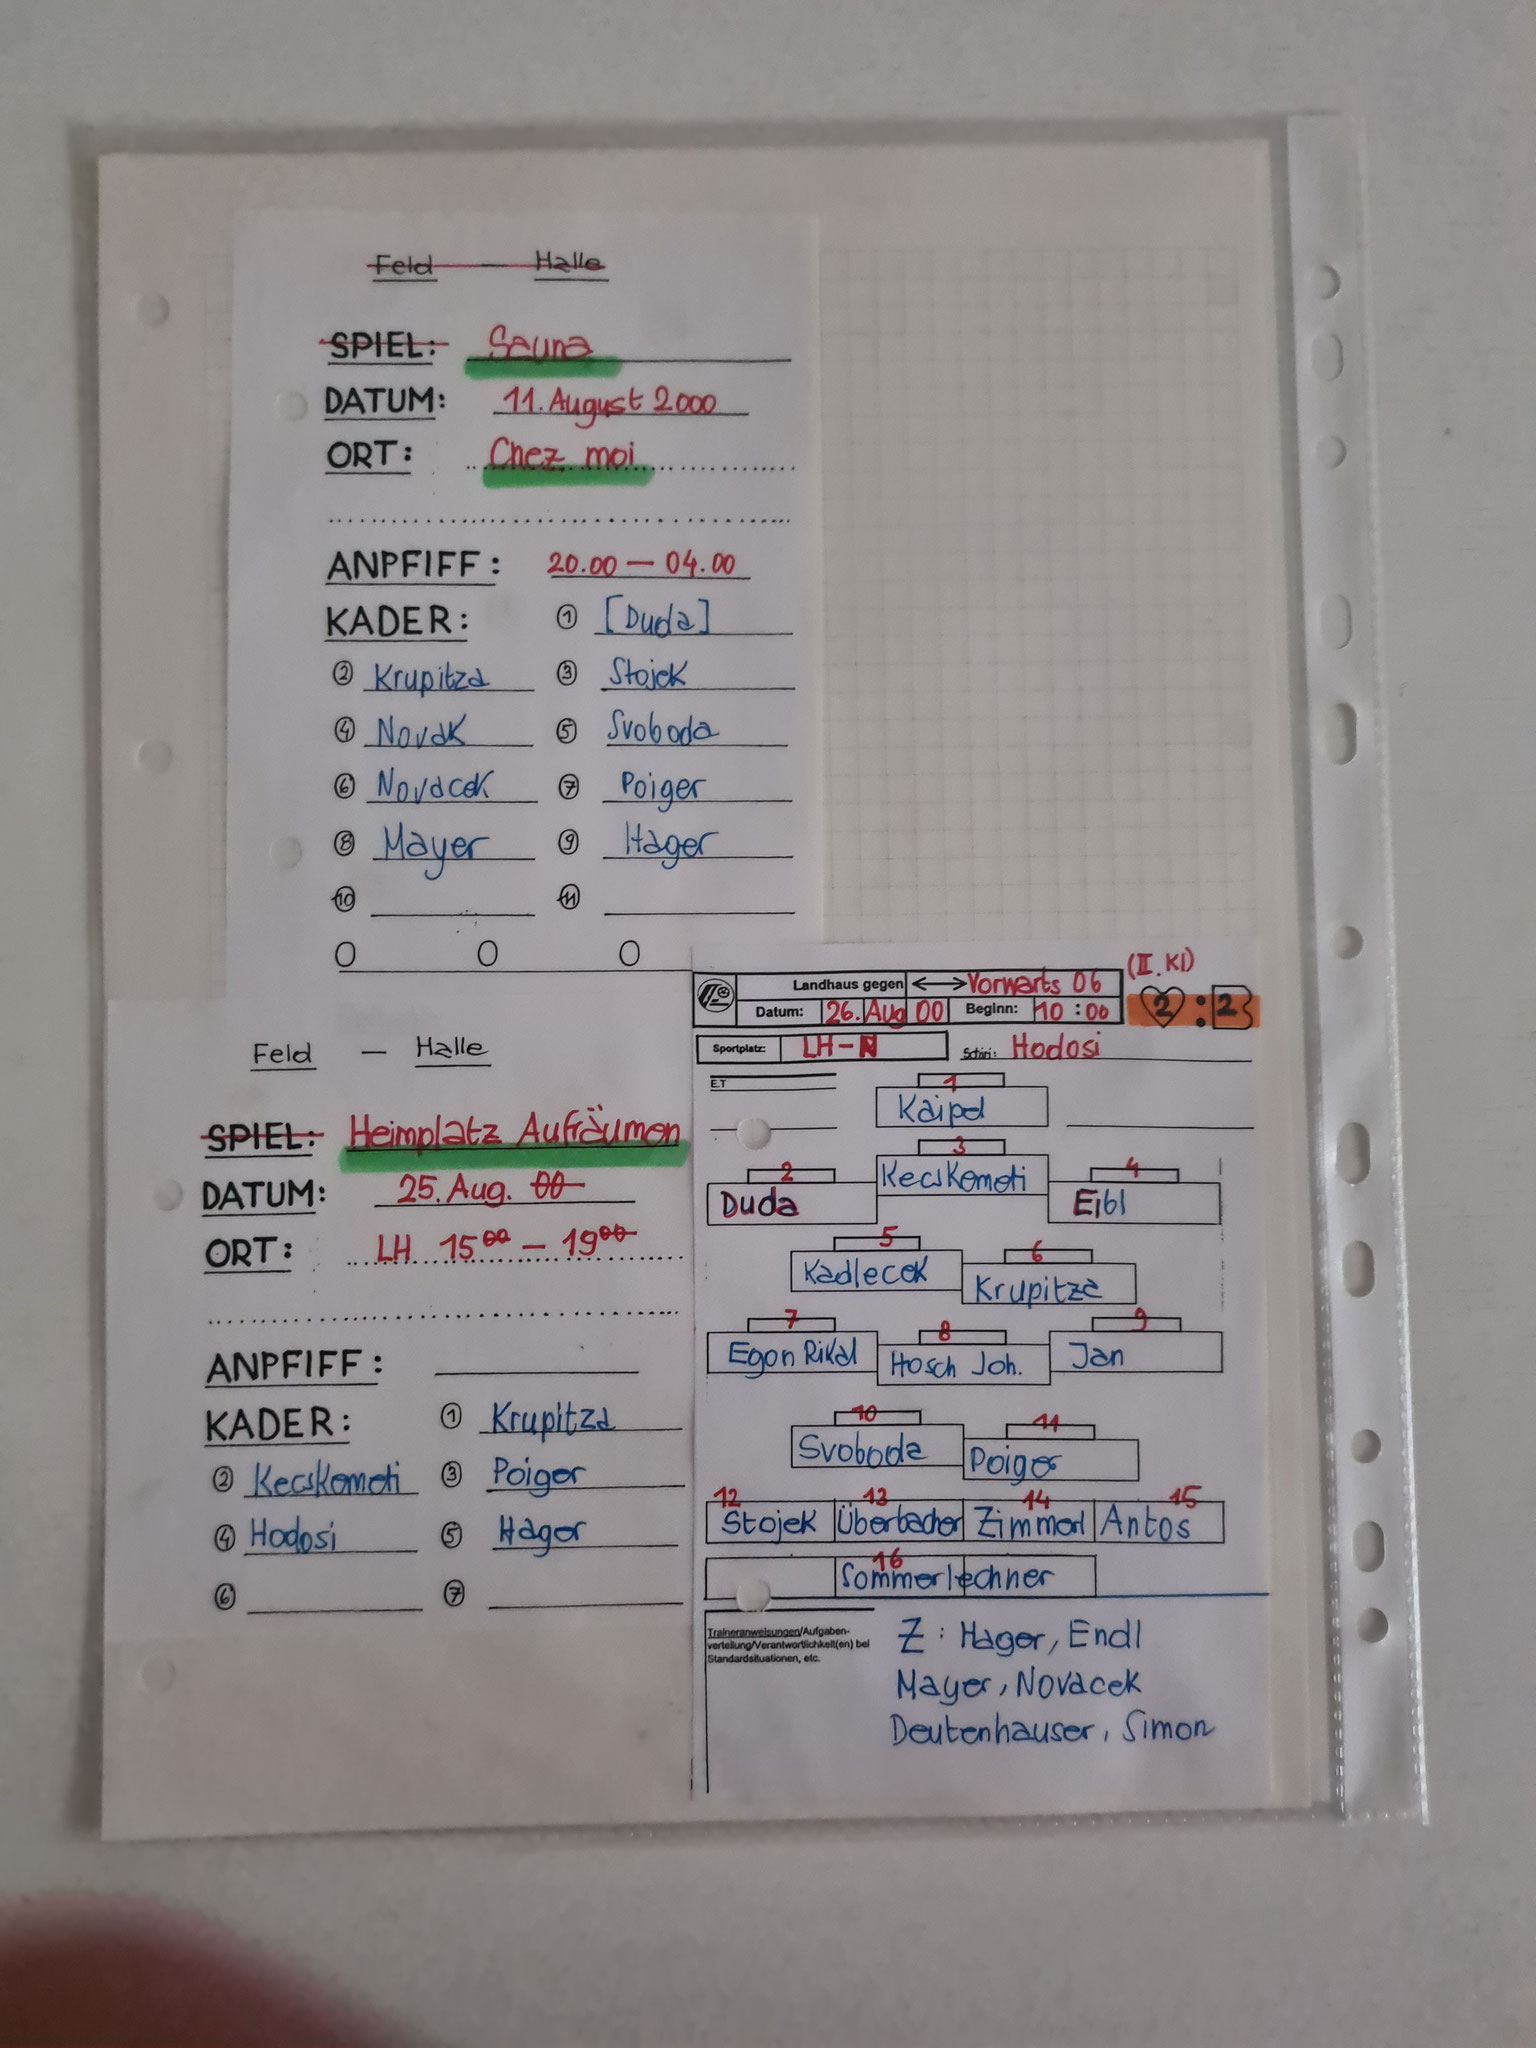 Feld — Halle
SPIEL: Sauna
DATUM: 11. August 2000
ORT: Chez moi
ANPFIFF: 20.00 — 04.00
KADER: ① [Duda]
② Krupitza ③ Stojek
④ Novak ⑤ Svoboda
⑥ Novacek ⑦ Poiger
⑧ Mayer ⑨ Hager
⑩ ⑪
O O O
Feld — Halle
SPIEL: Heimplatz Aufräumen
DATUM: 25. Aug. 00
ORT: LH 15⁰⁰ — 19⁰⁰
ANPFIFF:
KADER: ① Krupitza
② Kecskemeti ③ Poiger
④ Hodosi ⑤ Hager
⑥ ⑦
(II. Kl)
Landhaus gegen ⟷ Vorwärts 06
Datum: 26. Aug 00 Beginn: 10:00 2:2
Sportplatz: LH-N Schiri: Hodosi
E.T
1
Kaipel
2 3 4
Duda Kecskemeti Eibl
5 6
Kadlecek Krupitza
7 8 9
Egon Rikal Hosch Joh. Jan
10 11
Svoboda Poiger
12 13 14 15
Stojek Überbacher Zimmerl Antos
16
Sommerlechner
Traineranweisungen/Aufgaben-
verteilung/Verantwortlichkeit(en) bei
Standardsituationen, etc.
Z: Hager, Endl
Mayer, Novacek
Deutenhauser, Simon